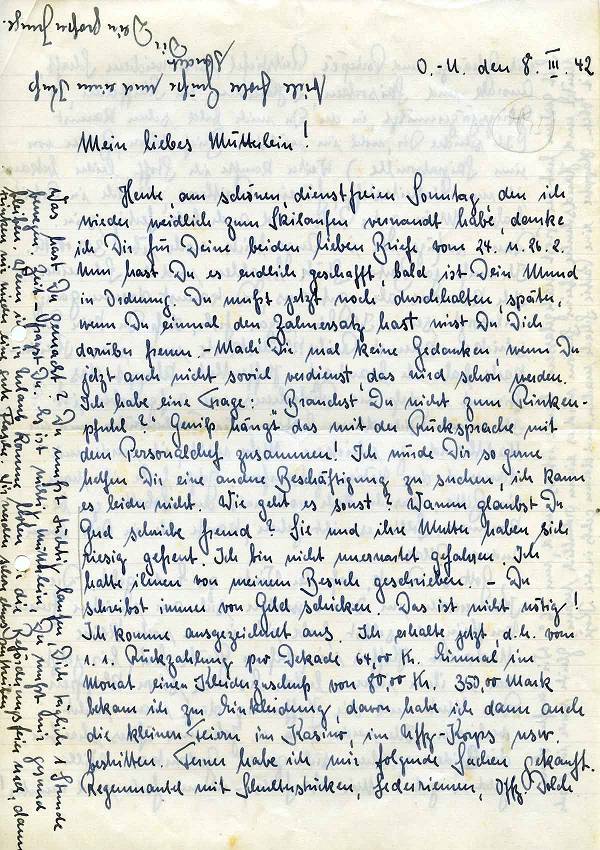 O.-U. den 8. III. 42
Mein liebes Mütterlein!
Heute, am schönen, dienstfreien Sonntag, den ich
wieder weidlich zum Skilaufen verwandt habe, danke
ich Dir für Deine beiden lieben Briefe vom 24. u. 26.2.
Nun hast Du es endlich geschafft, bald ist Dein Mund
in Ordnung. Du mußt jetzt noch durchhalten, später,
wenn Du einmal den Zahnersatz hast wirst Du Dich
darüber freuen. - Mach Dir mal keine Gedanken, wenn Du
jetzt auch nicht soviel verdienst, das wird schon werden.
Ich habe eine Frage: "Brauchst Du nicht zum Rinken-
pfuhl?" Gewiß hängt das mit der Rücksprache mit
dem Personalchef zusammen! Ich würde Dir so gerne
helfen Dir eine andere Beschäftigung zu suchen, ich kann
es leider nicht. Wie geht es sonst? Warum glaubst Du
Gud schreibe fremd? Sie und ihre Mutter haben sich
riesig gefreut. Ich bin nicht unerwartet gefahren. Ich
hatte ihnen von meinem Besuch geschrieben. - Du
schreibst immer von Geld schicken. Das ist nicht nötig!
Ich komme ausgezeichnet aus. Ich erhalte jetzt d.h. vom
1.1. Rückzahlung pro Dekade 64,00 Kr. Einmal im
Monat einen Kleiderzuschuß von 80,00 Kr. 350,00 Mark
bekam ich zur Einkleidung, davon habe ich dann auch
die kleinen Feiern im Kasino, im Uffz-Korps usw.
bestritten. Ferner habe ich mir folgende Sachen gekauft.
Regenmantel mit Schulterstücken, Lederriemen, Offz. Dolch
Was hast Du gemacht? Du mußt tüchtig laufen, Dich täglich 1 Stunde
bewegen. Zeit - fragst Du. Es ist nötig, Mütterlein, Du mußt mir gesund
bleiben. Wenn ich in Urlaub komme holen wir die Beförderungsfeier nach, dann
trinken wir wieder eine gute Flasche. Wir werden schon
Viele Grüße und einen Kuß
Dir
Dein großer Junge.